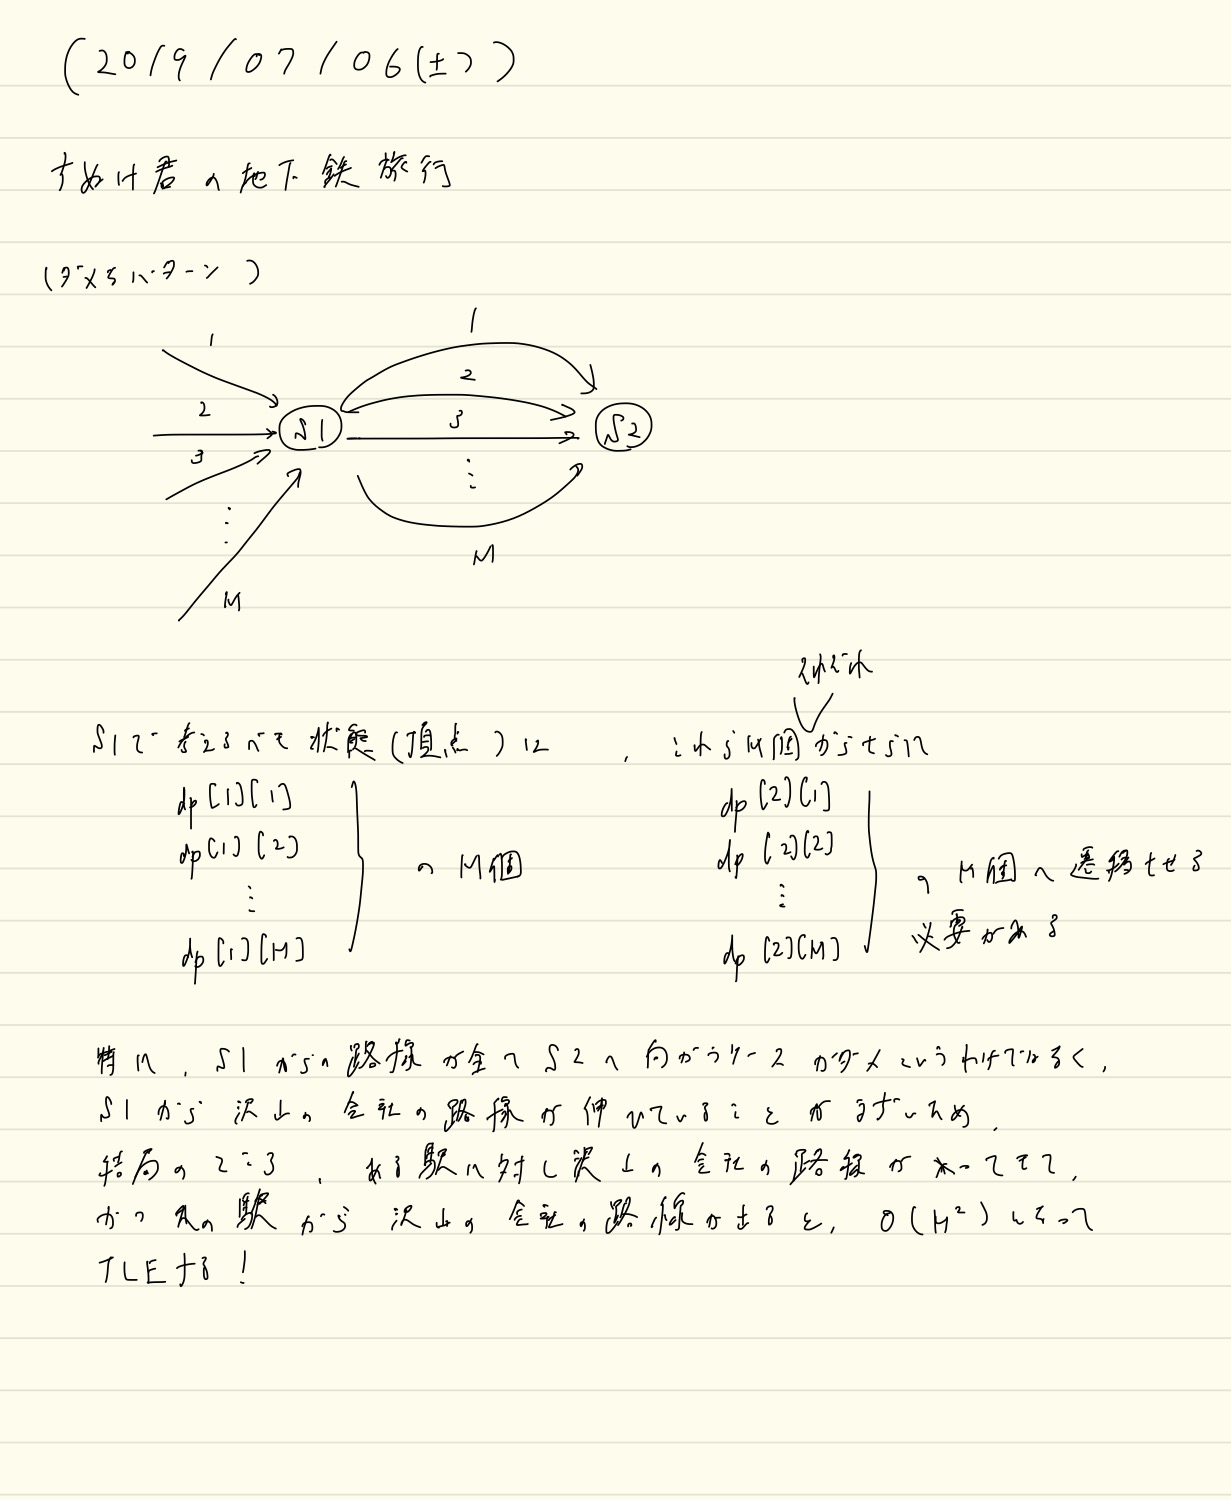 (2019/07/06(土))
すぬけ君の地下鉄旅行
(ダメなパターン)
1
1
2
2
3
3
S1
S2
⋮
⋮
M
M
それぞれ
S1で考えるべき状態(頂点)は、これらM個からさらに
dp[1][1]
dp[2][1]
dp[1][2]
dp[2][2]
⋮
のM個
⋮
のM個へ遷移させる
dp[1][M]
dp[2][M]
必要がある
特に、S1からの路線が全てS2へ向かうケースがダメというわけではなく、
S1から沢山の会社の路線が伸びていることがまずいため、
結局のところ、ある駅に対し沢山の会社の路線が入ってきて、
かつその駅から沢山の会社の路線が出ると、O(M²)になって
TLEする!